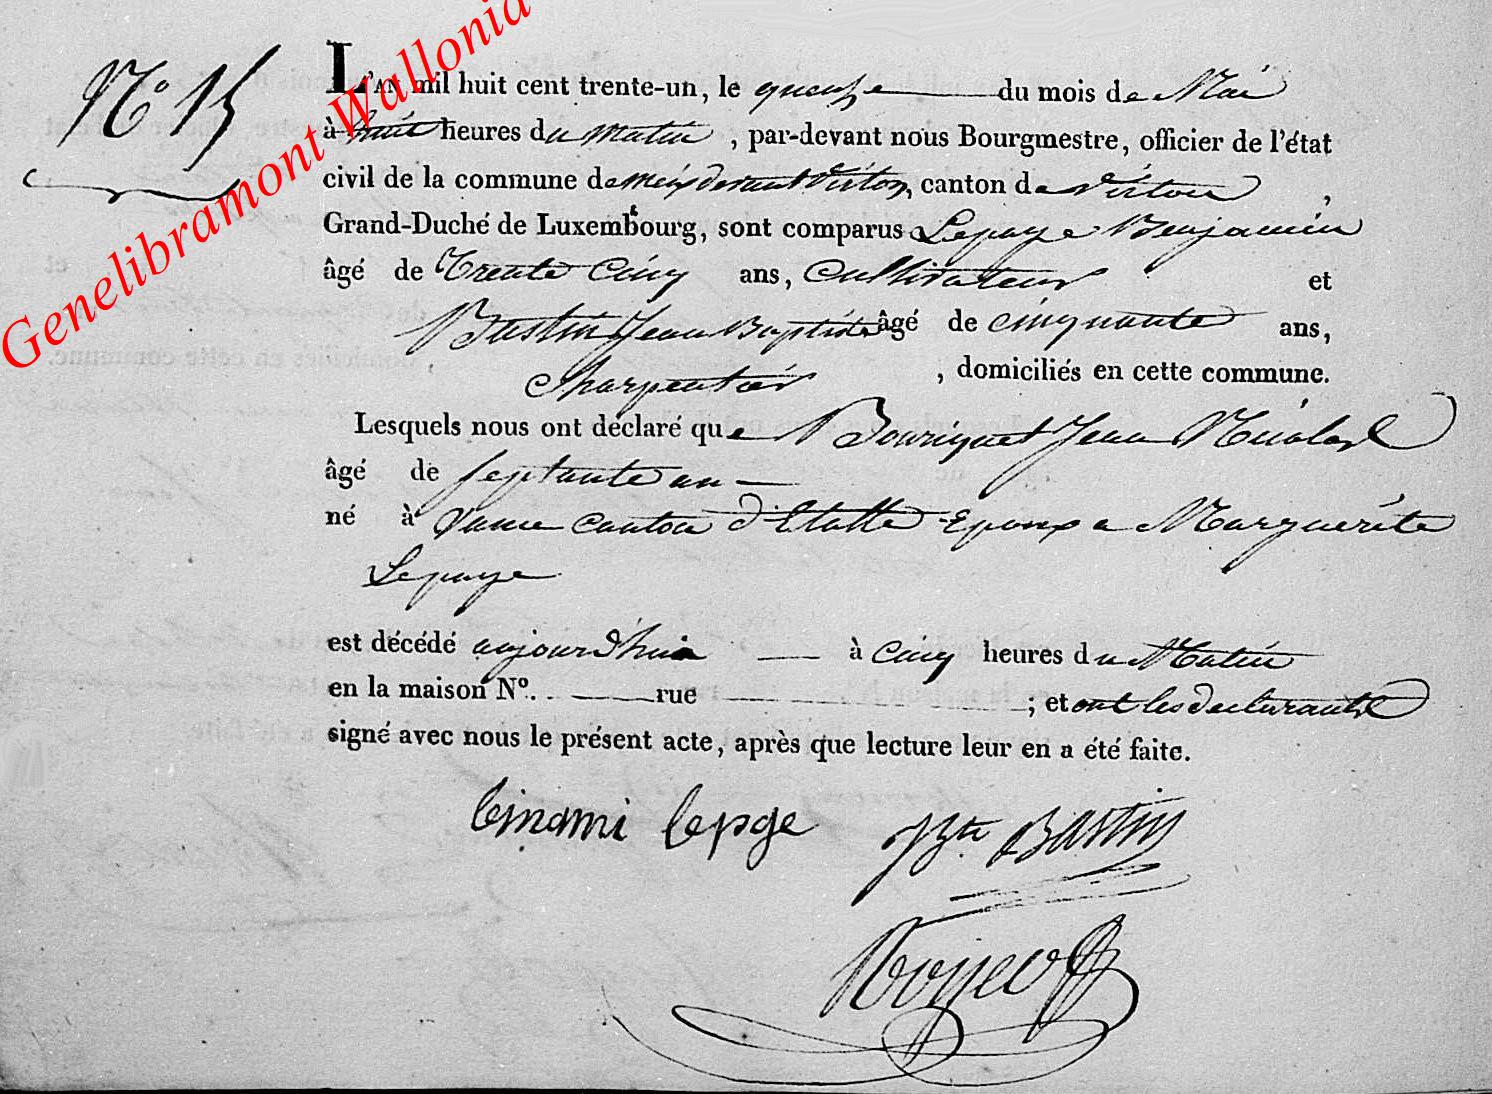 Genelibramont Wallonia
N.° 15
L'AN mil huit cent trente-un, le quenze du mois de Mai
à huit heures du matin, par-devant nous Bourgmestre, officier de l'état
civil de la commune de meix devant Virton, canton de Virton,
Grand-Duché de Luxembourg, sont comparus Lepage Benjamin
âgé de Trente Cinq ans, Cultivateur et
Bastin Jean Baptiste âgé de cinquante ans,
Charpentier, domiciliés en cette commune.
Lesquels nous ont déclaré que Bouriquet Jean Nicolas
âgé de septante un
né à canton d'Etalle Epoux a Marguerite
Lepage
est décédé aujourd'hui à cinq heures du Matin
en la maison N°. rue ; et ont les declarants
signé avec nous le présent acte, après que lecture leur en a été faite.
lepage
JBte Bastin